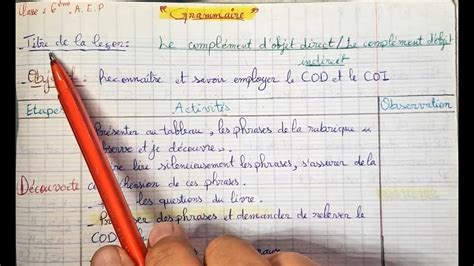 Classe : 6ème A.E.P
"Grammaire"
Titre de la leçon : Le complément d'objet direct / Le complément d'objet
indirect
: Reconnaître et savoir employer le COD et le COI
Etapes Activités Observation
Présenter au tableau, les phrases de la rubrique "
observe et je découvre".
lire silencieusement les phrases, s'assurer de la
Découverte compréhension de ces phrases.
les questions du livre.
des phrases et demander de relever le
COD